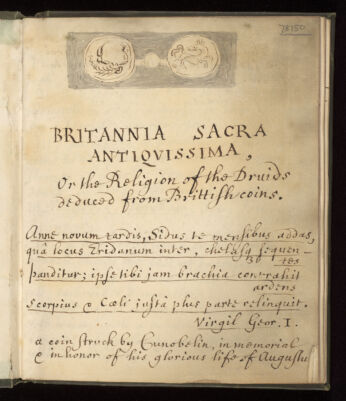 78150
BRITANNIA SACRA
ANTIQVISSIMA,
Or the Religion of the Druids
deduced from Brittish coins.
Anne novum tardis, Sidus te mensibus addas,
quâ locus Eridanum inter, chelasq sequen
tes
panditur; ipse tibi jam brachia contrahit
ardens
Scorpius & Cœli justâ plus parte relinquit.
Virgil Geor. I.
a coin struck by Cunobelin, in memorial
& in honor of his glorious life of Augustus